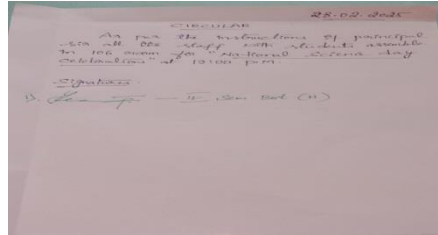 28-02-2025
CIRCULAR
As per the instructions of principal
sir all the staff with students assemble
in 106 room for "National Science day
celebration" at 12:00 p.m.
Signatures
1). — II Sem (H)